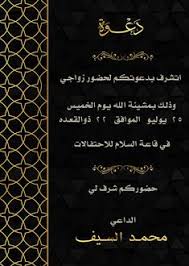 دعوة
اتشرف بدعوتكم لحضور زواجي
وذلك بمشيئة الله يوم الخميس
٢٥ يوليو الموافق ٢٢ ذوالقعده
في قاعة السلام للاحتفالات
حضوركم شرف لي
الداعي
محمد السيف